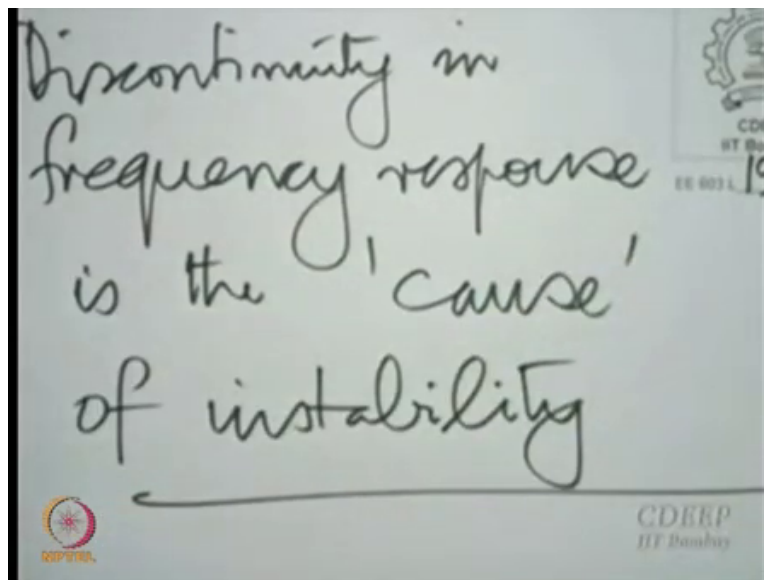 Discontinuity in
frequency response
is the 'cause'
of instability
EE 603 L 19
CDEEP
IIT Bombay
NPTEL